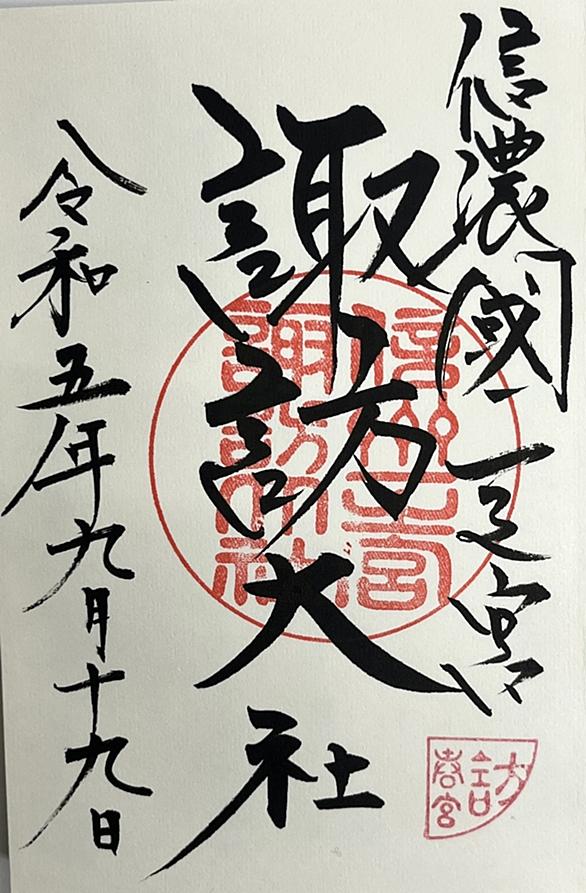 信濃國一之宮
諏訪大社
令和五年九月十九日
信州一之宮
諏訪神社
春宮